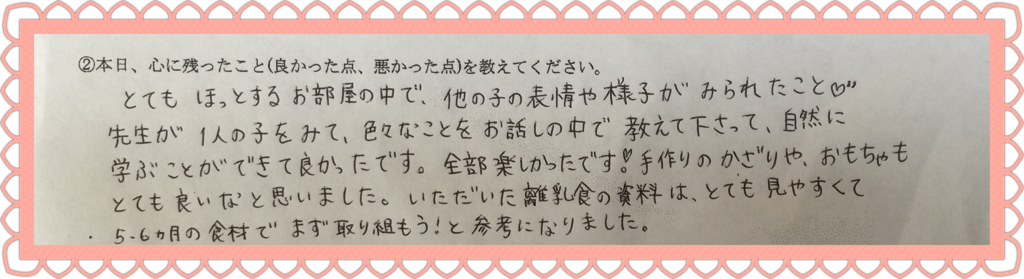 ②本日、心に残ったこと(良かった点、悪かった点)を教えてください。
とても ほっとする お部屋の中で、他の子の表情や様子が みられたこと♡"
先生が 1人の子をみて、色々なことを お話しの中で 教えて下さって、自然に
学ぶことができて良かったです。全部楽しかったです♡手作りの かざりや、おもちゃも
とても良いなと思いました。いただいた離乳食の資料は、とても見やすくて
5.6ヵ月の食材で まず取り組もう!と参考になりました。